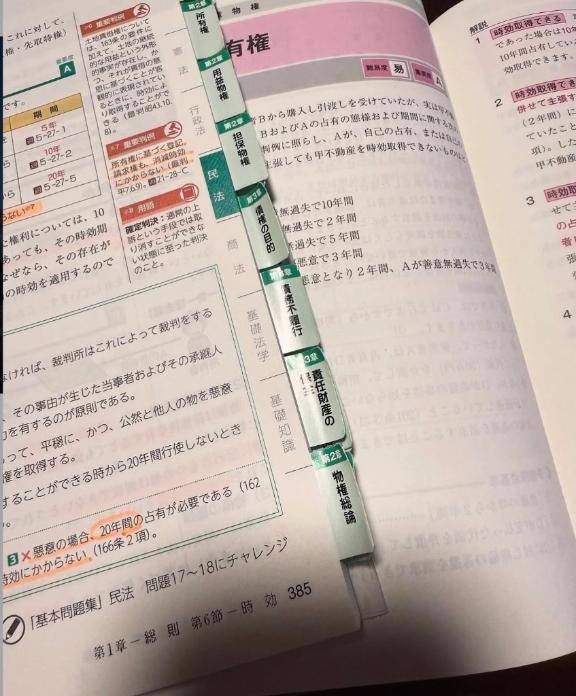 これに対して、
権・先取特権)
重要度
A
です。
期間
5年
5-27-1
10年
5-27-2
20年
5-27-5
らない
権利については、10
あっても、その時効期
なぜなら、その存在が
の時効を適用するので
重要判例
土地賃借権について
は、163条の要件に
加えて、土地の継続
的な用益という外形
的事実が存在し、か
つ、それが賃借の意
思に基づくことが客
観的に表現されてい
るときに、時効によ
り取得することがで
きる
重要判例
所有権に基づく登記
請求権も、消滅時効
にかからない(最判
平7.6.9)。 21-28-C
用語
確定判決:通常の上
訴という手段では取
り消すことができな
い状態に至った判決
のこと。
憲法
行政法
民法
商法
基礎法学
基礎知識
なければ、裁判所はこれによって裁判をする
、その事由が生じた当事者およびその承継人
力を有するのが原則である。
って、平穏に、かつ、公然と他人の物を
権を取得する。
することができる時から20年間行使しないとき
3 × 悪意の場合、20年間の占有が必要である(162
時効にかからない(166条2項)。
「基本問題集」民法 問題17~18にチャレンジ
第1章-総 則 第6節-時 効 385
第2章
所有権
第2章
用益物権
第2章
担保物権
第3章
債権の目的
第3章
債務不履行
第3章
責任財産の
保全
第2章
物権総論
物権
有権
難易度 易
重要度 A
Bから購入し引渡しを受けていたが、実は
BおよびAの占有の態様および期間に関する
判例に照らし、Aが、自己の占有、または自己
張しても甲不動産を時効取得できないものは
無過失で10年間
無過失で2年間
過失で5年間
悪意で3年間
悪意となり2年間、Aが善意無過失で3年間
解説
1 時効取得できる
であった場合は10年
10年間占有してい
効取得できます。
2 時効取得できる
併せて主張す
(2年間)に
ていたこと
項)。した
甲不動産
3 時効取
せて
の占
者
張
4